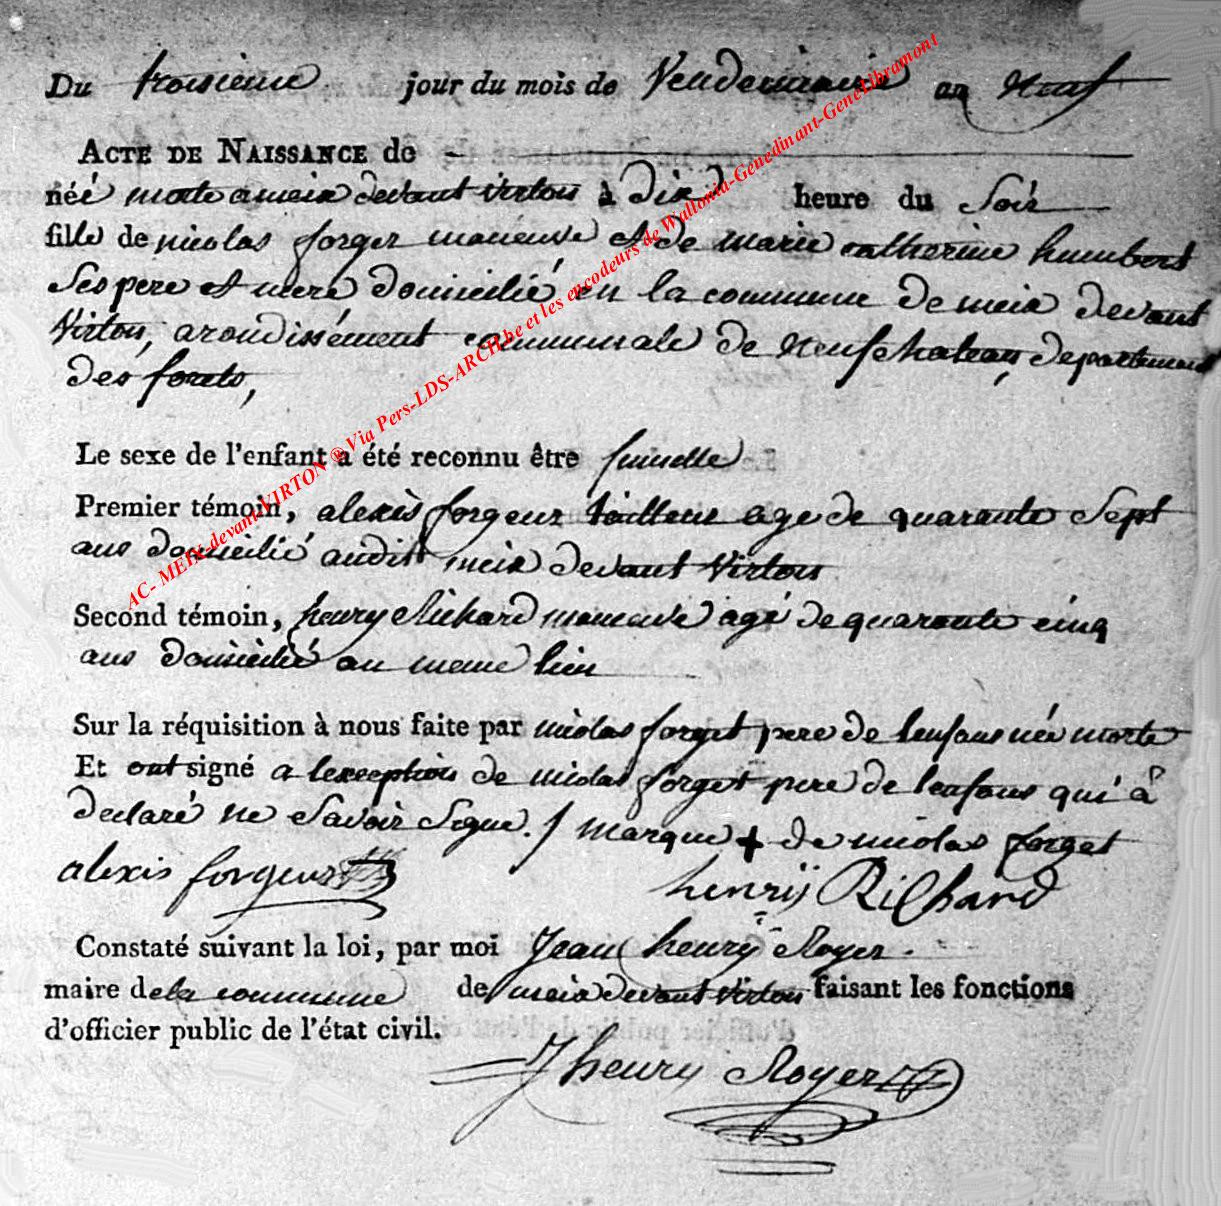 Du troisieme jour du mois de Vendemiaire an neuf
ACTE DE NAISSANCE de
néé morte a meix devant virton à dix heure du Soir
fille de nicolas forget maneuve et de marie catherine humbert
Ses pere et mere domicilié en la commune de meix devant
Virton, arondissément communale de neufchateau, departement
des forets,
Le sexe de l'enfant a été reconnu être fumelle
Premier témoin, alexis forgeur tailleur age de quarante Sept
ans domicilié audit meix devant Virton
Second témoin, henry Richard maneuve agé de quarante cinq
ans domicilié au meme lieu
Sur la réquisition à nous faite par nicolas forget pere de lenfans née morte
Et ont signé a lexception de nicolas forget pere de lenfans qui à
declaré ne Savoir Signe. / marque + de nicolas forget
alexis forgeur henrÿ Richard
Constaté suivant la loi, par moi Jean henrÿ Royer.
maire de la commune de meix devant Virton faisant les fonctions
d'officier public de l'état civil.
J henry Royer
AC- MEIX-devant-VIRTON ® Via Pers-LDS-ARCH.be et les encodeurs de Wallonia-Genedinant-GeneLibramont